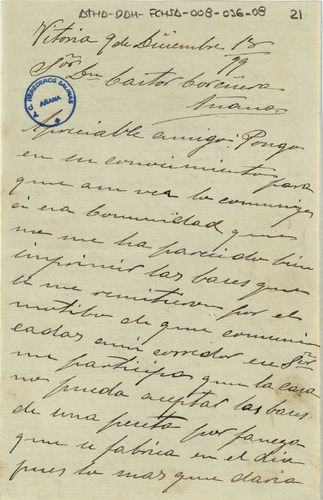 ATHD-DDH-FCHSA-008-036-08
21
Vitoria 9 de Diciembre 18
99
Sōr Dn Castor
Anana
C. HEREDEROS SALINAS
AÑANA
Apreciable amigo: Pongo
en su conocimiento para
que a su vez lo comunique
a esa Comunidad que
no me ha parecido bien
imprimir las bases que
se me remitieron por el
motibo de que comuni
cadas a mi corredor en
me participa que la casa
no pueda aceptar las bases
de una peseta por fanega
que se fabrica en el dia
pues lo mas que daria